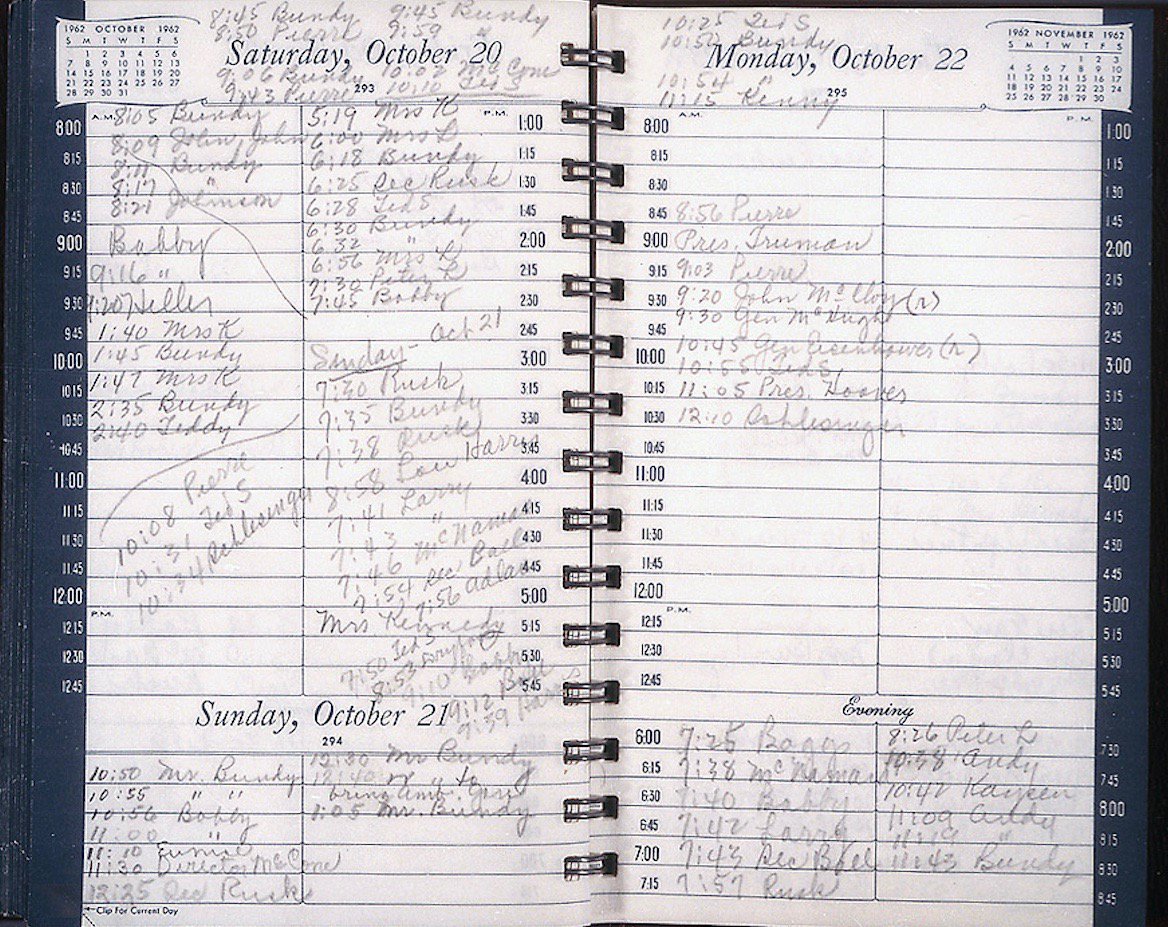 8:45 Bundy 9:45 Bundy
8:50 Pierre 9:59 "
1962 OCTOBER 1962
S M T W T F S
1 2 3 4 5 6
7 8 9 10 11 12 13
14 15 16 17 18 19 20
21 22 23 24 25 26 27
28 29 30 31
Saturday, October 20
9:06 Bundy 10:02 McCone
9:43 Pierre 10:10 Ted S
293
A.M.
8:00
8:05 Bundy
8:09 John, John
8:15
8:11 Bundy
8:17 "
8:30
8:21 Johnson
8:45
9:00
Bobby
9:15
9:16 "
9:30
9:20 Heller
9:45
1:40 Mrs K
10:00
1:45 Bundy
10:15
1:47 Mrs K
10:30
2:35 Bundy
2:40 Teddy
10:45
11:00
Pierre
10:08 Ted S
11:15
10:31
10:34 Schlesinger
11:30
11:45
12:00
P.M.
12:15
12:30
12:45
P.M.
5:19 Mrs K
1:00
6:00 Mrs L
1:15
6:18 Bundy
6:25 Sec Rusk
1:30
6:28 Ted S
1:45
6:30 Bundy
6:32 "
2:00
6:56 Mrs L
2:15
7:30 Peter L
7:45 Bobby
2:30
Oct 21
2:45
Sunday
3:00
7:30 Rusk
3:15
7:35 Bundy
3:30
7:38 Rusk
3:45
8:58 Lou Harris
4:00
7:41 Larry
4:15
7:43 "
7:46 McNamara
4:30
7:54 Sec Ball
4:45
7:56 Adlai
5:00
Mrs Kennedy
5:15
7:50 Ted S
8:53
5:30
9:10 Bobby
5:45
9:12 Ball
9:39 Harris
Sunday, October 21
294
10:50 Mr. Bundy
10:55 " "
10:56 Bobby
11:00 "
11:10 Eunice
11:30 Director McCone
12:25 Sec Rusk
12:30 Mr Bundy
12:40
bring Amb.
1:05 Mr. Bundy
Clip For Current Day
10:25 Ted S
10:50 Bundy
Monday, October 22
10:54 "
11:15 Kenny
295
1962 NOVEMBER 1962
S M T W T F S
1 2 3
4 5 6 7 8 9 10
11 12 13 14 15 16 17
18 19 20 21 22 23 24
25 26 27 28 29 30
A.M.
8:00
8:15
8:30
8:45
8:56 Pierre
9:00
Pres. Truman
9:15
9:03 Pierre
9:30
9:20 John McCloy (r)
9:30 Gen McHugh
9:45
10:45 Gen Eisenhower (r)
10:00
10:55 Ted S
10:15
11:05 Pres. Hoover
10:30
12:10 Schlesinger
10:45
11:00
11:15
11:30
11:45
12:00
P.M.
12:15
12:30
12:45
P.M.
1:00
1:15
1:30
1:45
2:00
2:15
2:30
2:45
3:00
3:15
3:30
3:45
4:00
4:15
4:30
4:45
5:00
5:15
5:30
5:45
Evening
6:00
7:25 Boggs
6:15
7:38 McNamara
6:30
7:40 Bobby
6:45
7:42 Larry
7:00
7:43 Sec Ball
7:15
7:57 Rusk
8:26 Peter L
7:30
10:38 Andy
7:45
10:42 Kaysen
8:00
11:09 Andy
8:15
11:19 "
11:43 Bundy
8:30
8:45